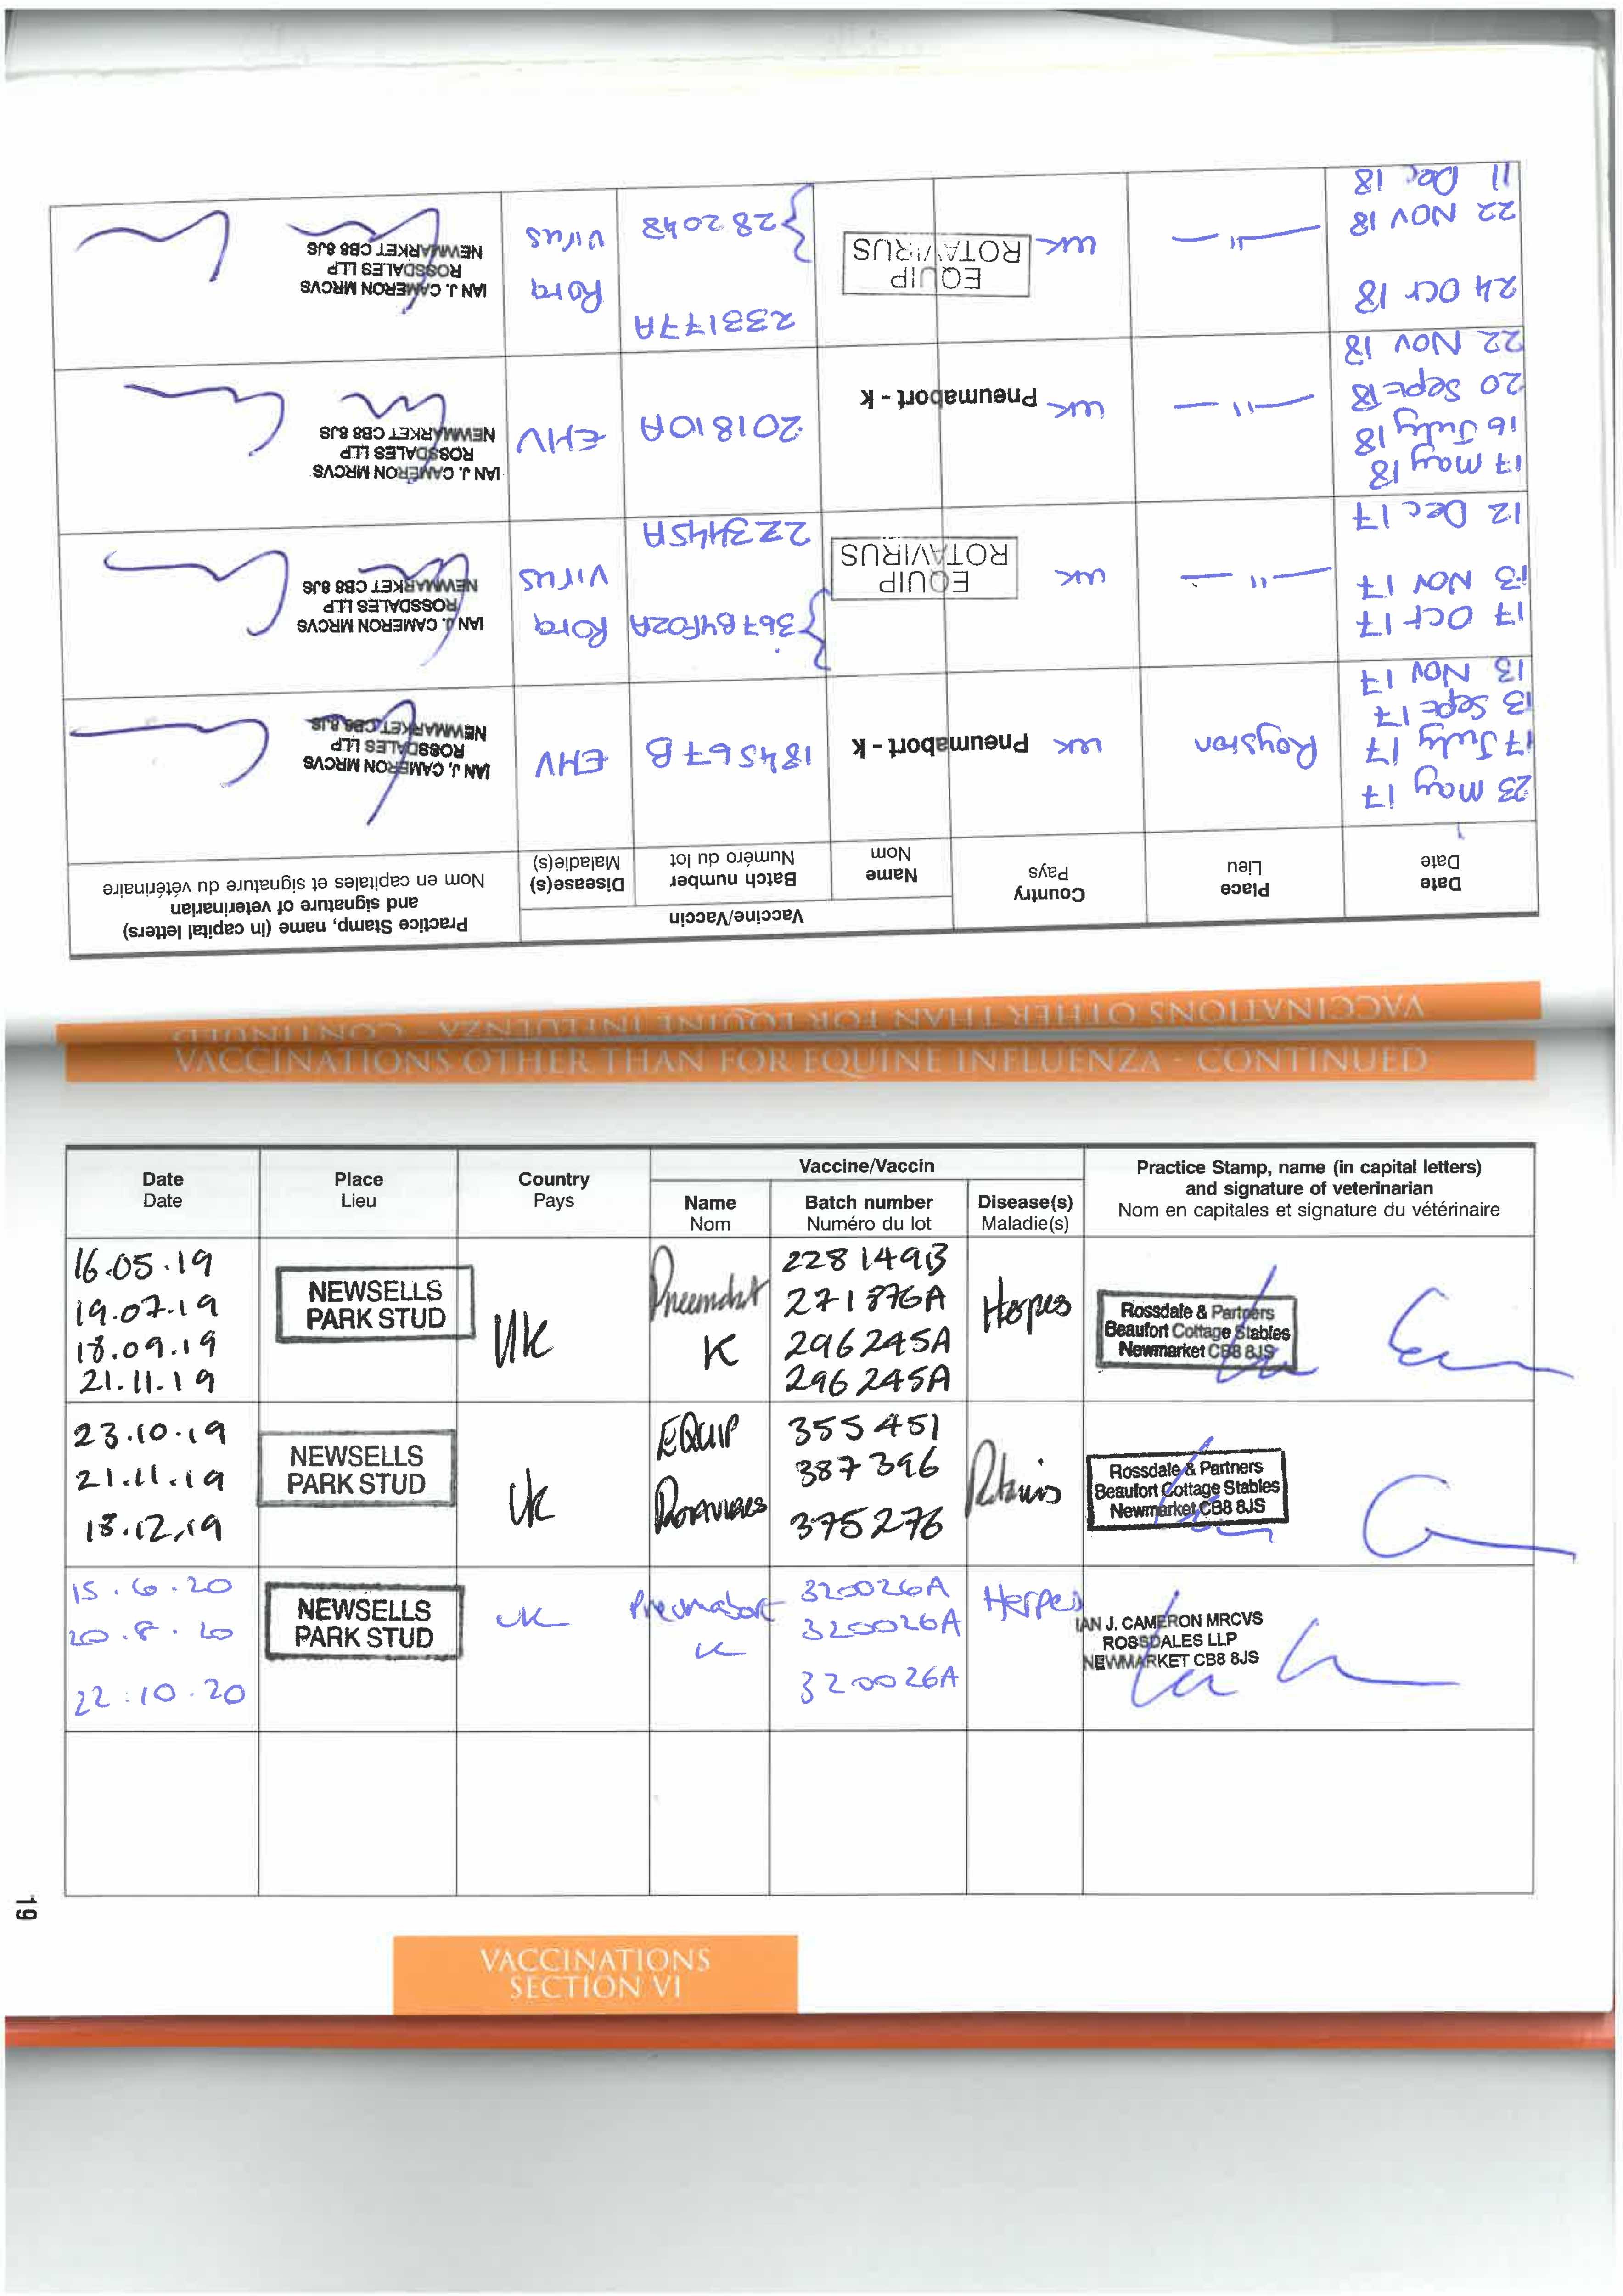 VACCINATIONS OTHER THAN FOR EQUINE INFLUENZA - CONTINUED
Date
Date
Place
Lieu
Country
Pays
Vaccine/Vaccin
Name
Nom
Batch number
Numéro du lot
Disease(s)
Maladie(s)
Practice Stamp, name (in capital letters)
and signature of veterinarian
Nom en capitales et signature du vétérinaire
23 May 17
17 July 17
13 Sept 17
13 Nov 17
Royston
UK
Pneumabort - K
184567B
EHV
IAN J. CAMERON MRCVS
ROSSDALES LLP
NEWMARKET CB8 8JS
17 Oct 17
13 Nov 17
12 Dec 17
— 11 —
UK
EQUIP
ROTAVIRUS
36784F02A
223445A
Rota
Virus
IAN J. CAMERON MRCVS
ROSSDALES LLP
NEWMARKET CB8 8JS
17 May 18
16 July 18
20 Sept 18
22 Nov 18
— 11 —
UK
Pneumabort - K
201810A
EHV
IAN J. CAMERON MRCVS
ROSSDALES LLP
NEWMARKET CB8 8JS
24 Oct 18
22 Nov 18
11 Dec 18
— 11 —
UK
EQUIP
ROTAVIRUS
233177A
282048
Rota
Virus
IAN J. CAMERON MRCVS
ROSSDALES LLP
NEWMARKET CB8 8JS
VACCINATIONS OTHER THAN FOR EQUINE INFLUENZA - CONTINUED
Date
Date
Place
Lieu
Country
Pays
Vaccine/Vaccin
Name
Nom
Batch number
Numéro du lot
Disease(s)
Maladie(s)
Practice Stamp, name (in capital letters)
and signature of veterinarian
Nom en capitales et signature du vétérinaire
16.05.19
19.07.19
18.09.19
21.11.19
NEWSELLS
PARK STUD
UK
K
228149B
271876A
296245A
296245A
Herpes
Rossdale & Partners
Beaufort Cottage Stables
Newmarket CB8 8JS
23.10.19
21.11.19
18.12.19
NEWSELLS
PARK STUD
UK
EQUIP
355451
387396
375276
Rossdale & Partners
Beaufort Cottage Stables
Newmarket CB8 8JS
15.6.20
20.8.20
22.10.20
NEWSELLS
PARK STUD
UK
Pneumabort
K
320026A
320026A
320026A
Herpes
IAN J. CAMERON MRCVS
ROSSDALES LLP
NEWMARKET CB8 8JS
19
VACCINATIONS
SECTION VI